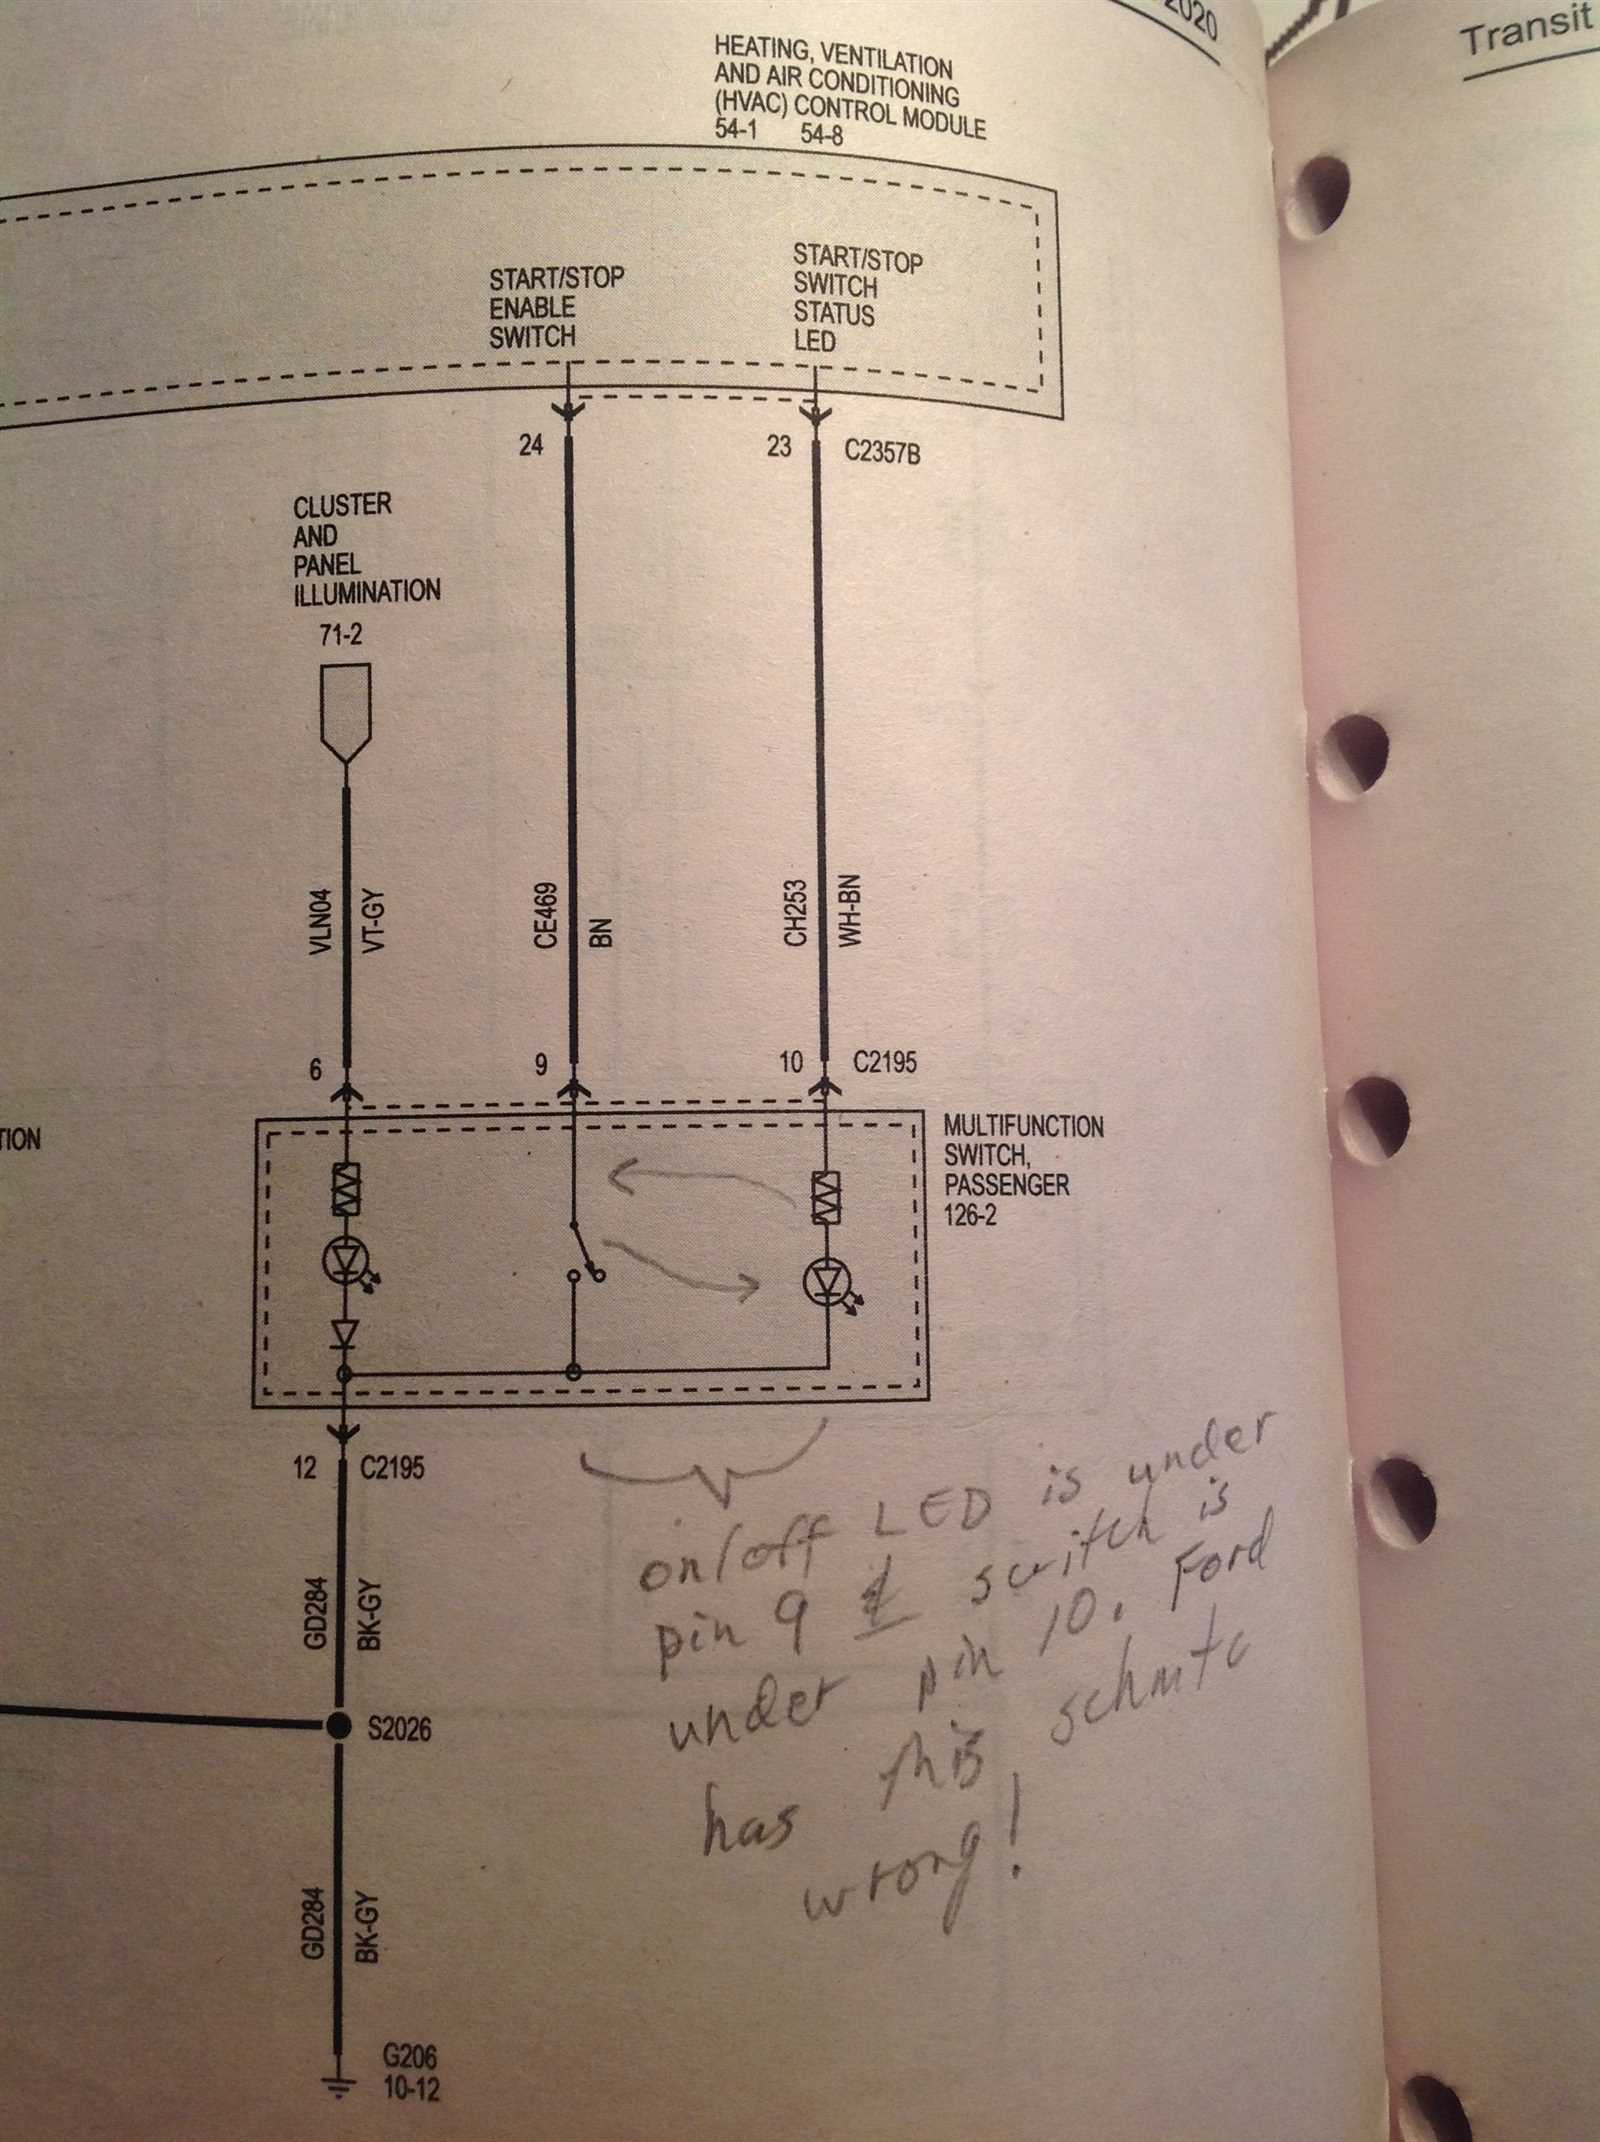 2020
Transit
HEATING, VENTILATION
AND AIR CONDITIONING
(HVAC) CONTROL MODULE
54-1 54-8
START/STOP
ENABLE
SWITCH
START/STOP
SWITCH
STATUS
LED
24
23
C2357B
CLUSTER
AND
PANEL
ILLUMINATION
71-2
VLN04
VT-GY
CE469
BN
CH253
WH-BN
6
9
10
C2195
TION
MULTIFUNCTION
SWITCH,
PASSENGER
126-2
12
C2195
GD284
BK-GY
S2026
GD284
BK-GY
G206
10-12
on/off LED is under
pin 9 & switch is
under pin 10. Ford
has this schmtc
wrong!